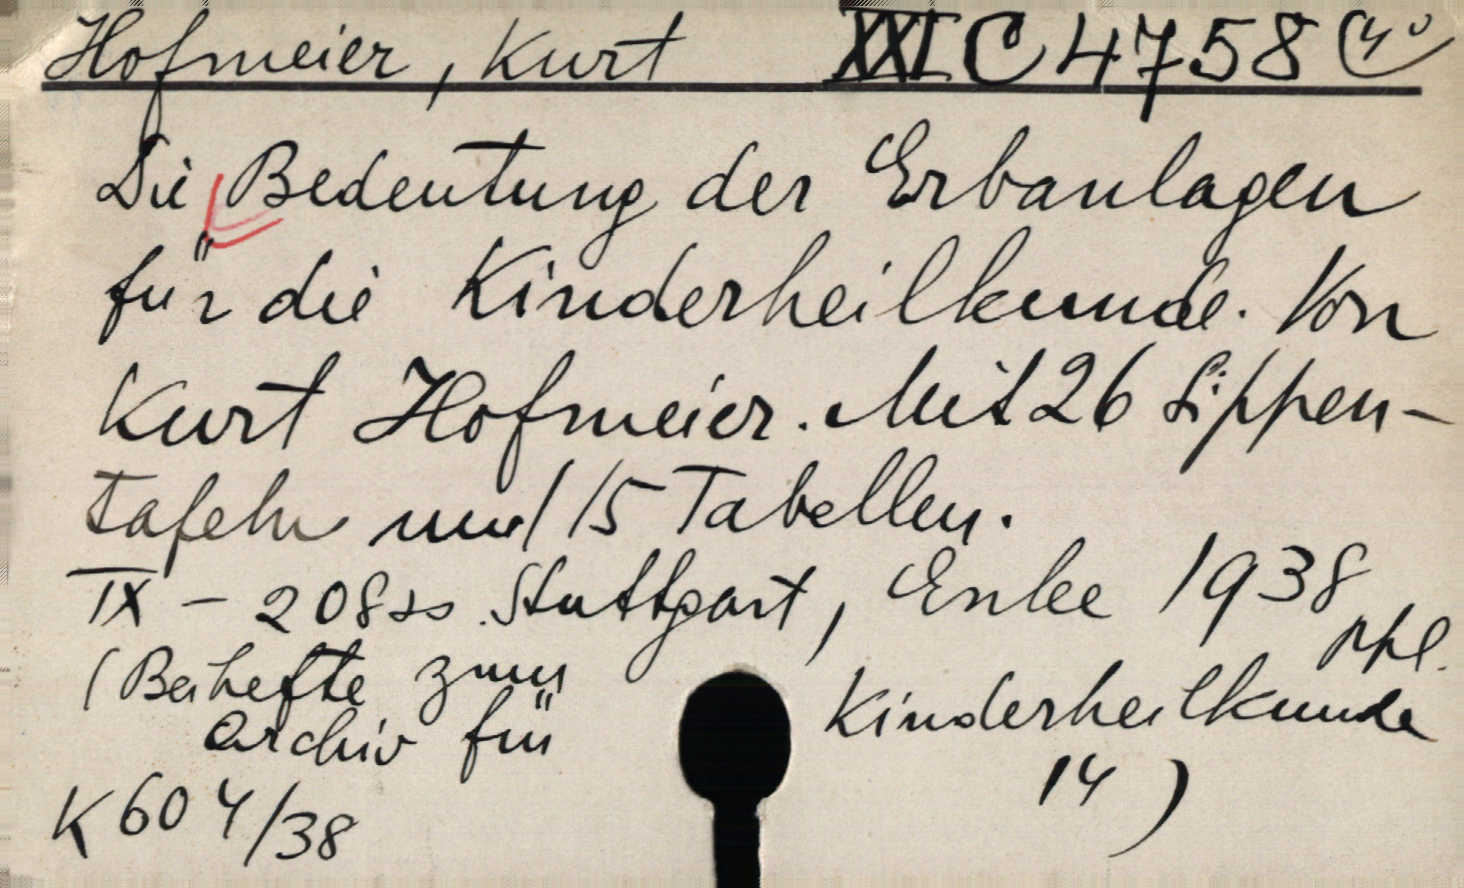 Hofmeier, Kurt XXI C 4758 (4°)
Die Bedeutung der Erbanlagen
für die Kinderheilkunde. Von
Kurt Hofmeier. Mit 26 Sippen-
tafeln und 15 Tabellen.
IX - 208 ss. Stuttgart, Enke 1938
(Beihefte zum
Archiv für Kinderheilkunde
14)
K 604/38